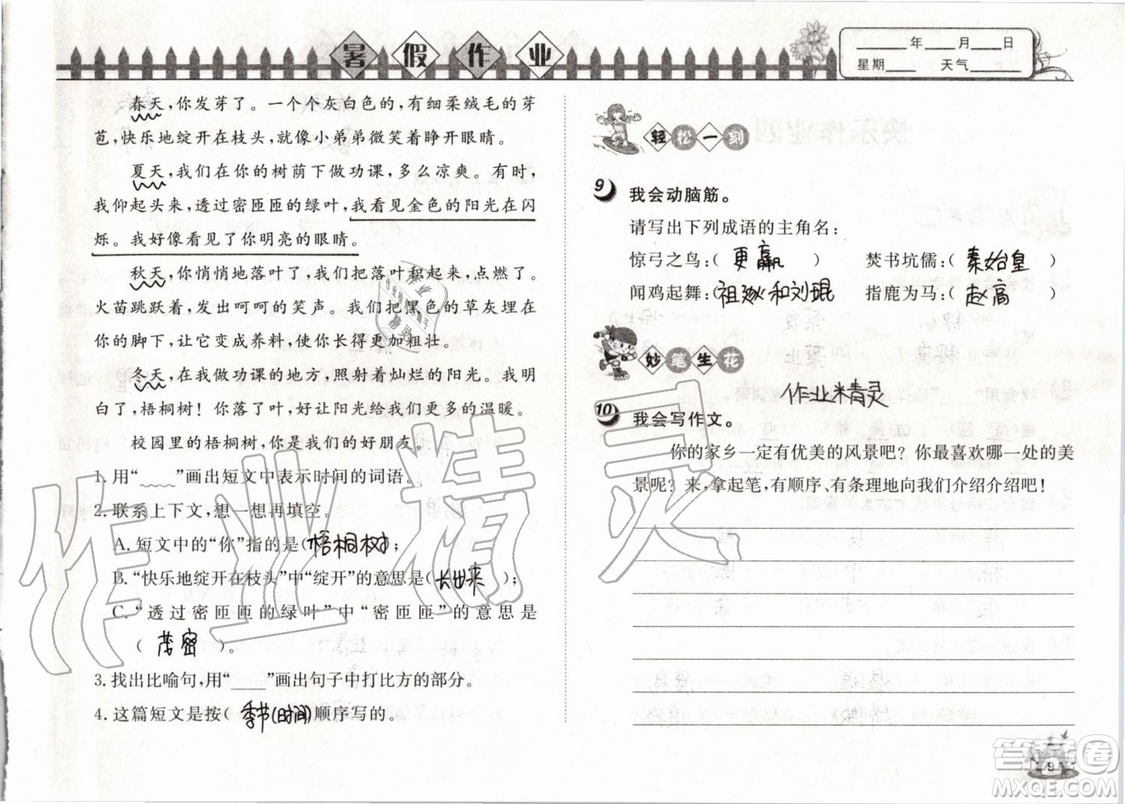 暑假作业
____年____月____日
星期____ 天气____
春天，你发芽了。一个个灰白色的，有细柔绒毛的芽
苞，快乐地绽开在枝头，就像小弟弟微笑着睁开眼睛。
夏天，我们在你的树荫下做功课，多么凉爽。有时，
我仰起头来，透过密匝匝的绿叶，我看见金色的阳光在闪
烁。我好像看见了你明亮的眼睛。
秋天，你悄悄地落叶了。我把落叶积起来，点燃了。
火苗跳跃着，发出呵呵的笑声。我们把黑色的草灰埋在
你的脚下，让它变成养料，使你长得更加粗壮。
冬天，在我做功课的地方，照射着灿烂的阳光。我明
白了，梧桐树！你落了叶，好让阳光给我更多的温暖。
校园里的梧桐树，你是我们的好朋友。
1.用“____”画出短文中表示时间的词语。
2.联系上下文，想一想再填空。
A.短文中的“你”指的是(梧桐树)；
B.“快乐地绽开在枝头”中“绽开”的意思是(长出来)；
C.“透过密匝匝的绿叶”中“密匝匝”的意思是
(茂密)。
3.找出比喻句，用“____”画出句子中打比方的部分。
4.这篇短文是按(季节(时间))顺序写的。
轻松一刻
9 我会动脑筋。
请写出下列成语的主角名：
惊弓之鸟：(更羸) 焚书坑儒：(秦始皇)
闻鸡起舞：(祖逖和刘琨) 指鹿为马：(赵高)
妙笔生花
作业精灵
10 我会写作文。
你的家乡一定有优美的风景吧？你最喜欢哪一处的美
景呢？来，拿起笔，有顺序、有条理地向我们介绍介绍吧！
9
作业精灵
答案圈
MXQE.COM